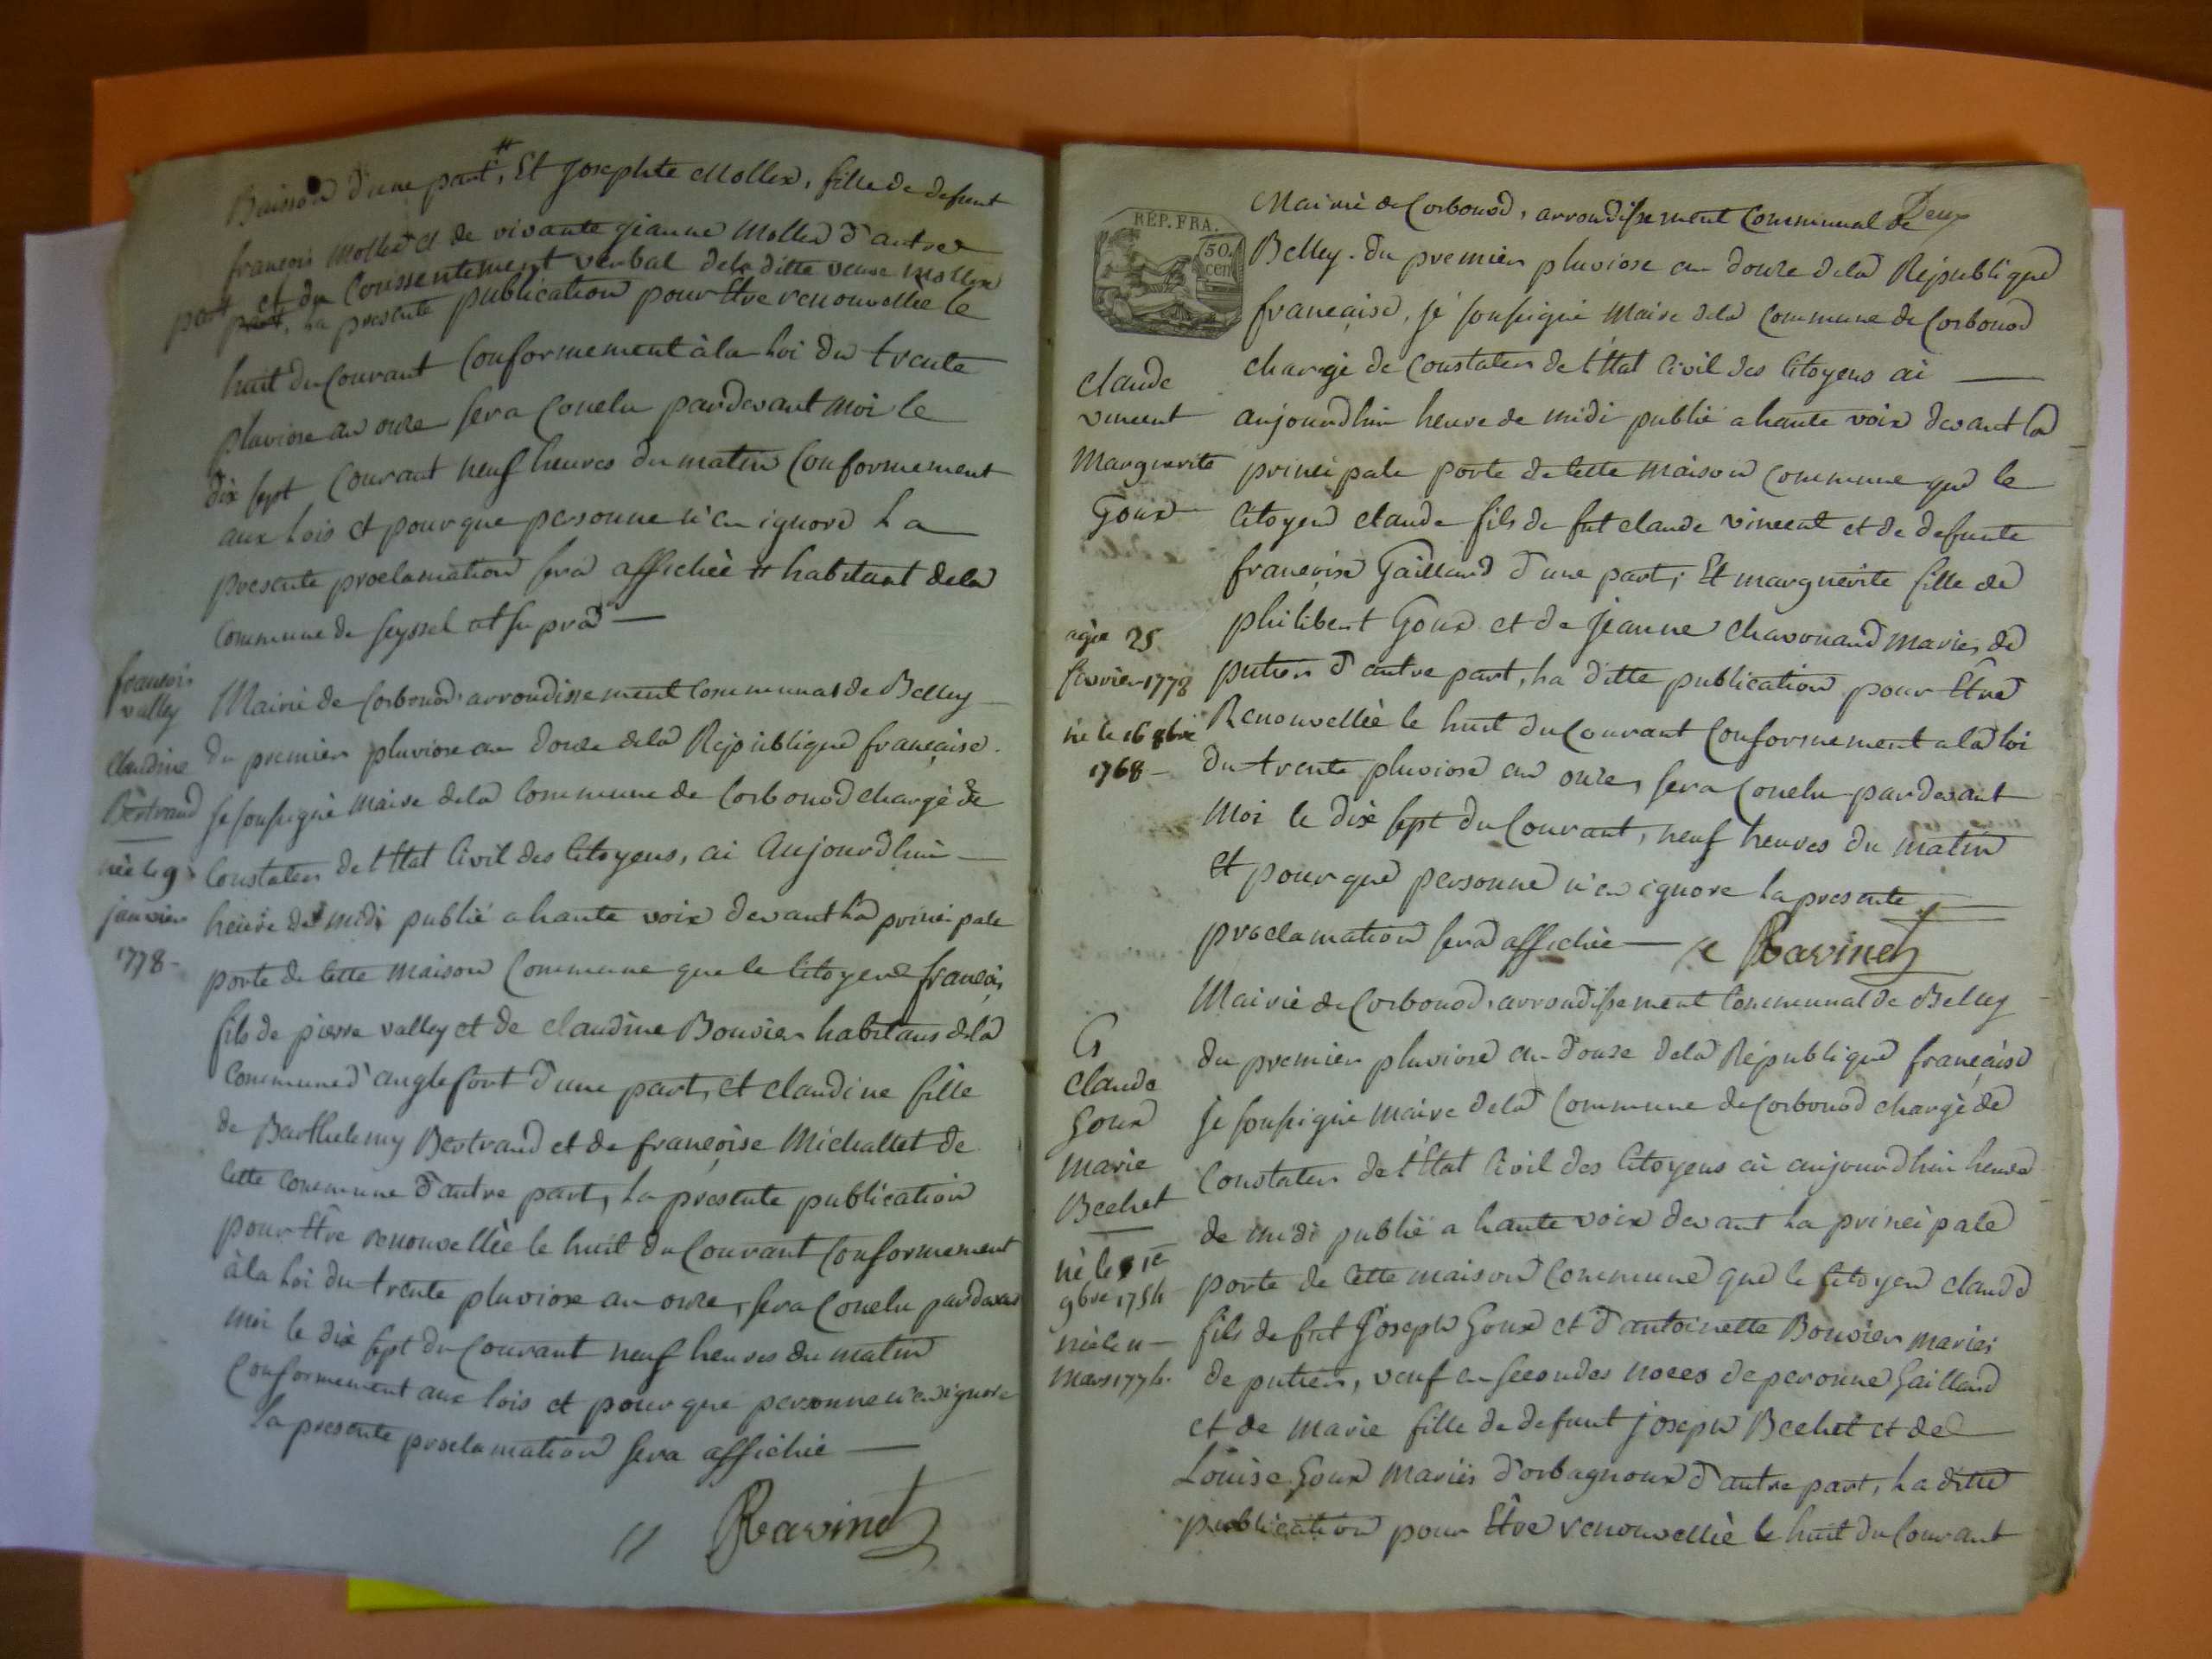 Buisson d'une part, # Et Josephte Mollex, fille de defunt
francois Mollex et de vivante jeanne Mollex d'autre
part et du Consentement verbal dela ditte veuve Mollex
part, La presente publication pour Etre renouvellée le
huit du Courant Conformement à la Loi du trente
pluviose an onze sera Conclu pardevant moi le
dix sept Courant neuf heures du matin Conformement
aux Lois et pour que personne n'en ignore La
presente proclamation sera affichée # habitant dela
Commune de seyssel ut supra —
francois
valley
Claudine
Bertrand
née le 9
janvier
1778 -
Mairie de Corbonod, arrondissement Communal de Belley
du premier pluviose an douze dela République française.
Je soussigné Maire dela Commune de Corbonod chargé de
Constater de l'Etat Civil des Citoyens, ai Aujourdhui —
heure de midi publié a haute voix devant La principale
porte de Cette Maison Commune que le Citoyen francois
fils de pierre valley et de claudine Bouvier habitans dela
Commune d'anglefort d'une part, et claudine fille
de Barthelemy Bertrand et de françoise Michallet de
Cette Commune d'autre part, La presente publication
pour Etre renouvellée le huit du Courant Conformement
à la Loi du trente pluviose an onze, sera Conclu pardevant
moi le dix sept du Courant neuf heures du matin
Conformement aux lois et pour que personne n'en ignore
la presente proclamation sera affichée —
Ravinet
Deux
REP. FRA.
50.
cen
Mairie de Corbonod, arrondissement Communal de
Belley. Du premier pluviose an douze dela République
française, Je soussigné Maire dela Commune de Corbonod
chargé de Constater de l'Etat Civil des Citoyens ai —
aujourdhui heure de midi publié a haute voix devant la
principale porte de Cette Maison Commune que le
Citoyen claude fils de fut claude vincent et de defunte
françoise Gaillard d'une part; Et marguerite fille de
philibert Goux et de Jeanne chavonand mariés de
putier d'autre part, La ditte publication pour Etre
Renouvellée le huit du Courant Conformement a la Loi
du trente pluviose an onze, sera Conclu pardevant
Moi le dix sept du Courant, neuf heures du matin
Et pour que personne n'en ignore la presente
proclamation sera affichée — Ravinet
claude
vincent
Marguerite
Goux
agée 25
fevrier 1778
né le 16 8bre
1768 -
Mairie de Corbonod, arrondissement Communal de Belley
du premier pluviose an douze dela République française
Je soussigné Maire dela Commune de Corbonod chargé de
Constater de l'Etat Civil des Citoyens ai aujourdhui heure
de midi publié a haute voix devant La principale
porte de Cette maison Commune que le Citoyen claude
fils de fut Joseph Goux et d'antoinette Bouvier mariés
de putier, veuf en secondes noces de peronne Gaillard
et de Marie fille de defunt joseph Bechet et de
Louise Goux Mariés d'orbagnoux d'autre part, La ditte
publication pour Etre renouvellée le huit du Courant
Claude
Goux
Marie
Bechet
né le 1er
9bre 1754
née le 11 -
Mars 1774.